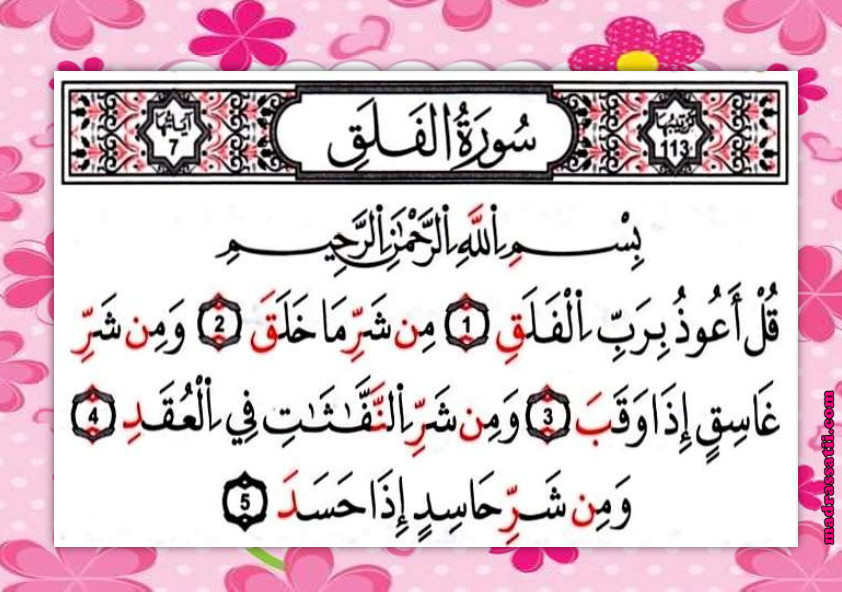 ترتيبها 113
سُورَةُ الفَلَقِ
آيَاتُهَا 7
بِسْمِ اِللَّهِ اِلرَّحْمَٰنِ اِلرَّحِيمِ
قُلْ أَعُوذُ بِرَبِّ اِلْفَلَقِ 1 مِن شَرِّ مَا خَلَقَ 2 وَمِن شَرِّ
غَاسِقٍ إِذَا وَقَبَ 3 وَمِن شَرِّ اِلنَّفَّٰثَٰتِ فِي اِلْعُقَدِ 4
وَمِن شَرِّ حَاسِدٍ إِذَا حَسَدَ 5
madrassatii.com